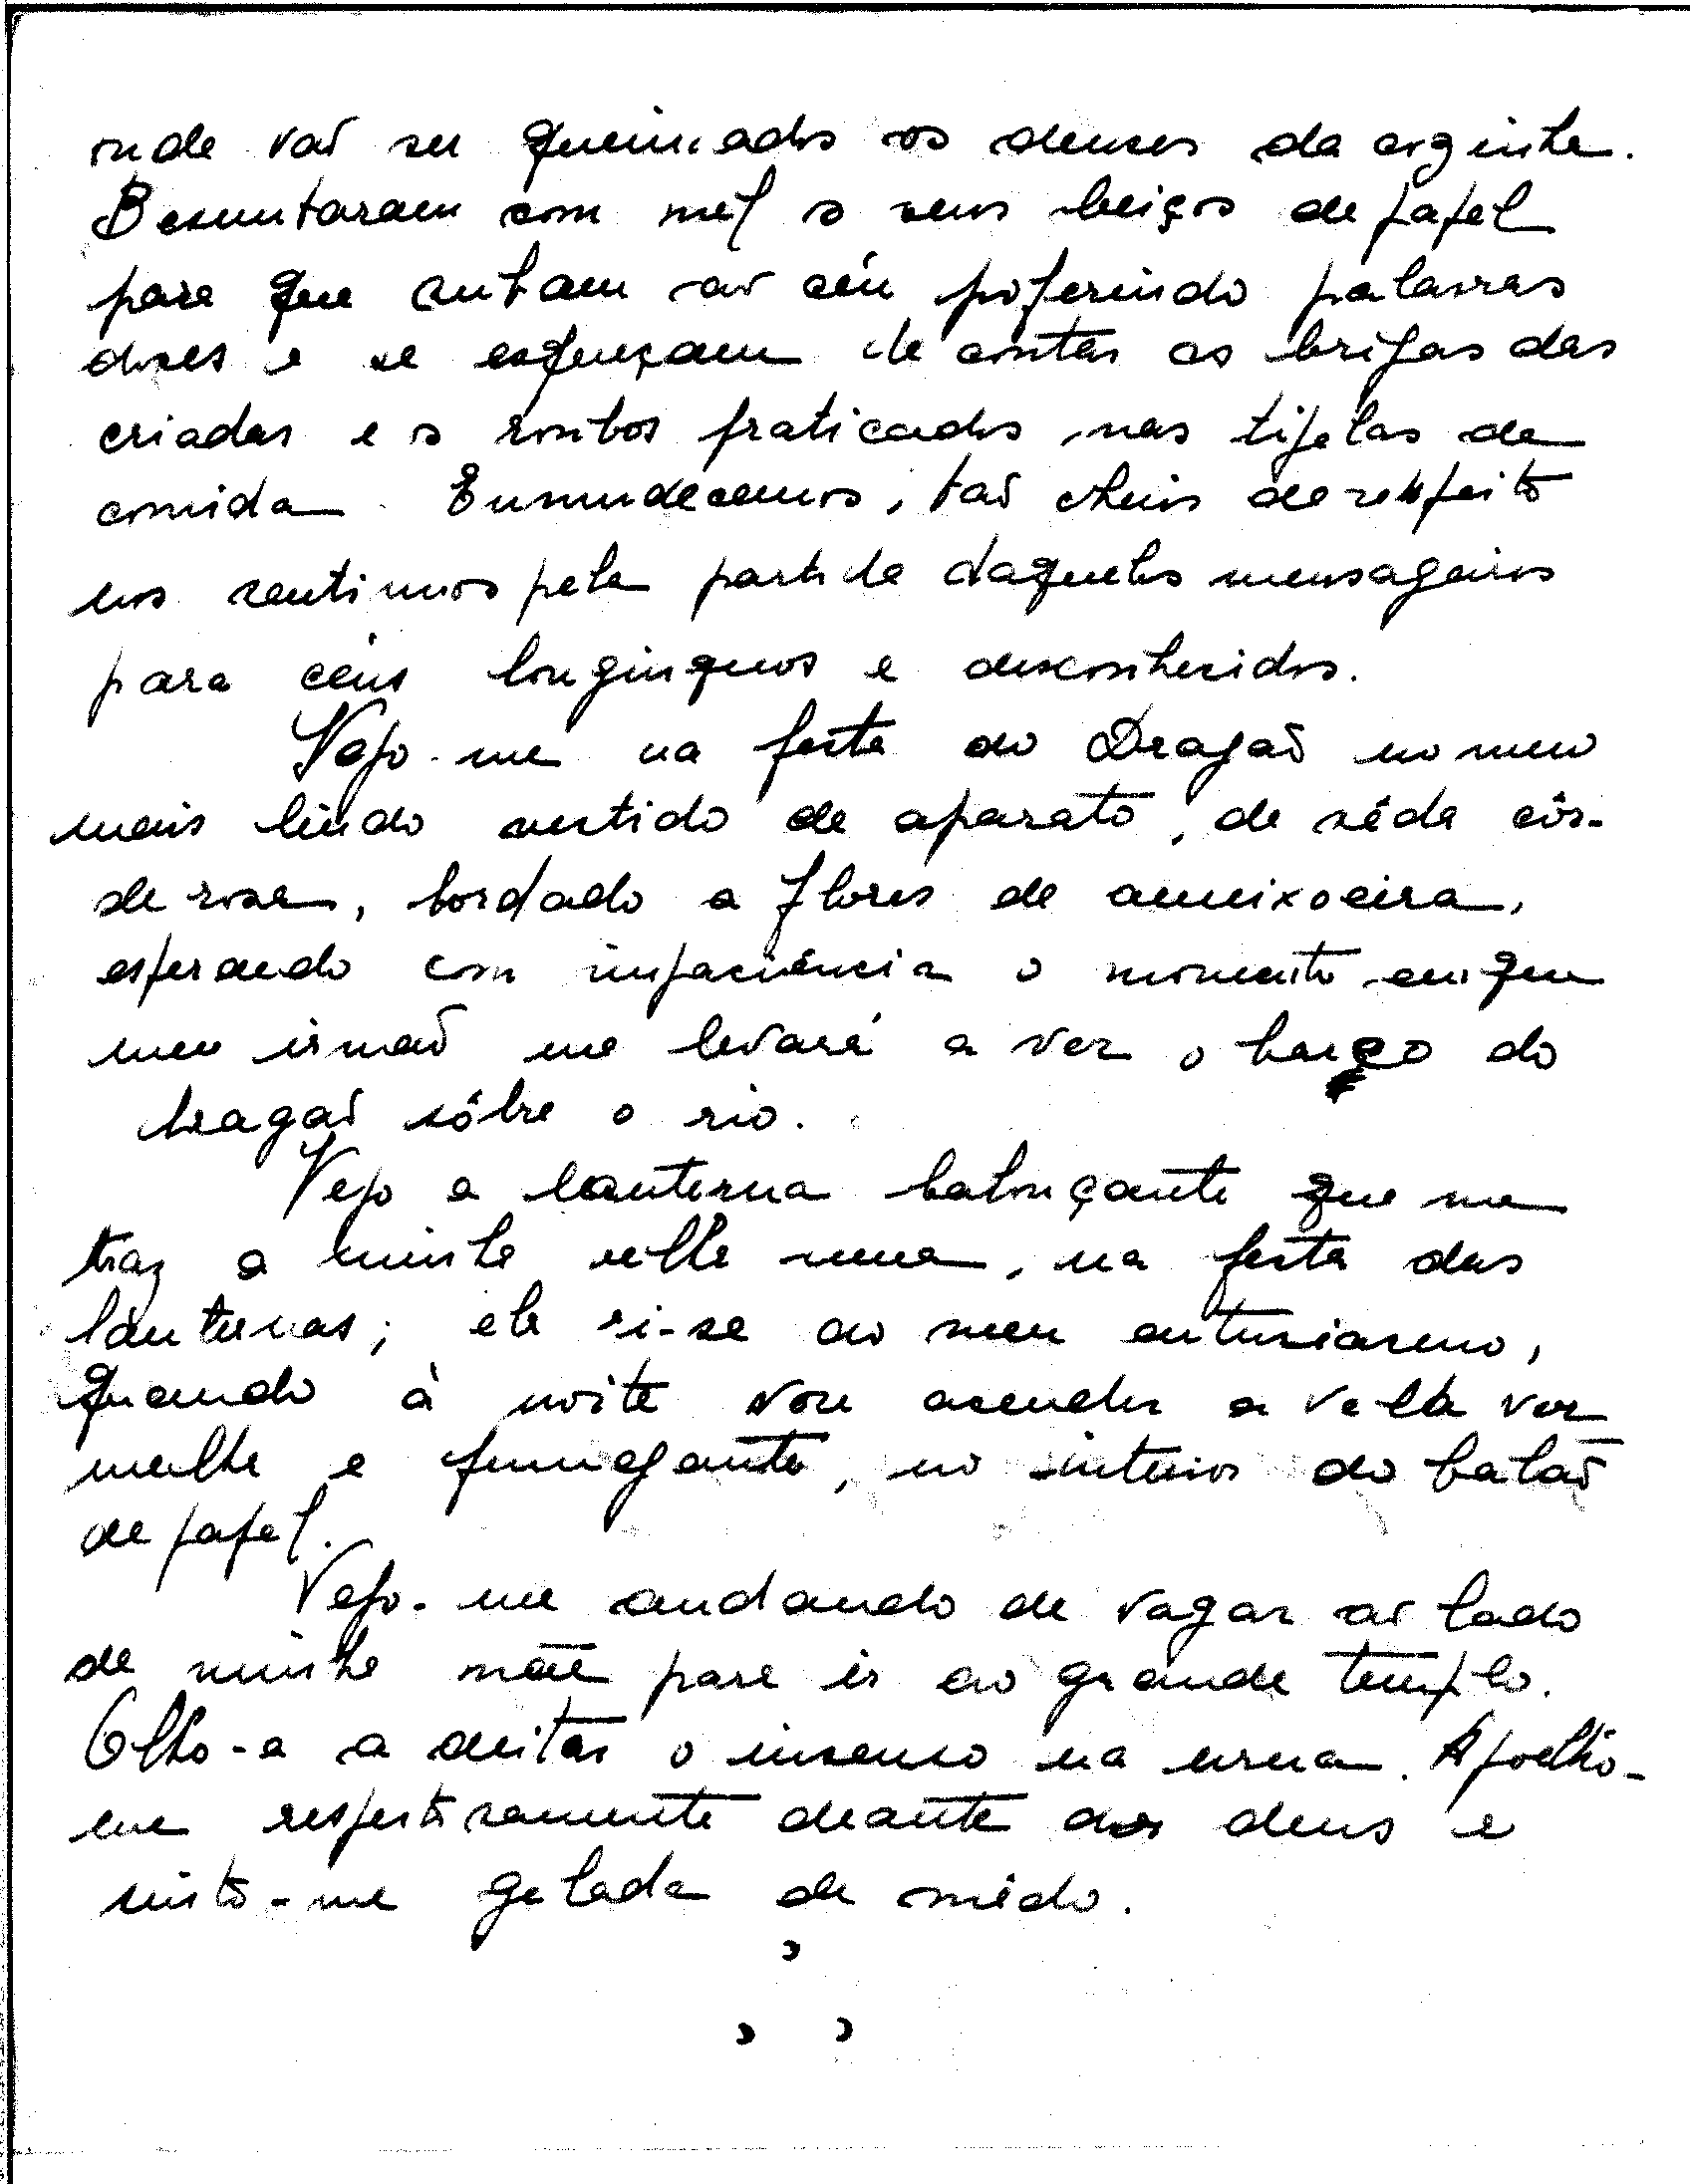 onde vão ser queimados os deuses da cozinha.
Besuntaram com mel os seus beiços de papel
para que subam ao céu proferindo palavras
doces e se esqueçam de contar as brigas das
criadas e os roubos praticados nas tigelas de
comida. Emmudecemos, tão cheios de respeito
nos sentimos pela partida daqueles mensageiros
para céus longinquos e desconhecidos.
Vejo-me na festa do Dragão no meu
mais lindo vestido de aparato, de sêda côr-
de rosa, bordado a flores de ameixoeira,
esperando com impaciência o momento em que
meu irmão me levará a ver o barco do
dragão sôbre o rio.
Vejo a lanterna baloiçante que me
traz a minha velha ama, na festa das
lanternas; ela ri-se ao meu entusiasmo,
quando à noite vou acender a vela ver
melha e fumegante, no interior do balão
de papel.
Vejo-me andando de vagar ao lado
de minha mãe para ir ao grande templo.
Olho-a a deitar o incenso na urna. Ajoelho-
me respeitosamente deante dos deus e
sinto-me gelada de mêdo.